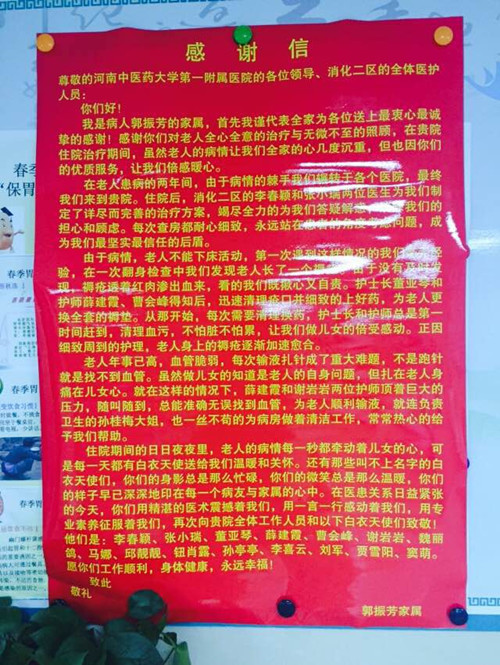 感谢信
尊敬的河南中医药大学第一附属医院的各位领导、消化二区的全体医护
人员：
你们好！
我是病人郭振芳的家属，首先我谨代表全家为各位送上最衷心最诚
挚的感谢！感谢你们对老人全心全意的治疗与无微不至的照顾，在贵院
住院治疗期间，虽然老人的病情让我们全家的心几度沉重，但也因你们
的优质服务，让我们倍感暖心。
在老人患病的两年间，由于病情的棘手我们辗转于各个医院，最终
我们来到贵院。住院后，消化二区的李春颖和张小瑞两位医生为我们制
定了详尽而完善的治疗方案，竭尽全力的为我们答疑解惑 我们的
担心和顾虑。每次查房都耐心细致，永远站在患者的角度考虑问题，成
为我们最坚实最信任的后盾。
由于病情，老人不能下床活动，第一次遇到这样情况的我们 经
验，在一次翻身检查中我们发现老人长了一个 由于没有及时发
现，褥疮透着红肉渗出血来，看的我们既揪心又自责。护士长董亚琴和
护师薛建霞、曹会峰得知后，迅速清理疮口并细致的上好药，为老人更
换全套的褥垫。从那开始，每次需要清理换药，护士长和护师总是第一
时间赶到，清理血污，不怕脏不怕累，让我们做儿女的倍受感动。正因
细致周到的护理，老人身上的褥疮逐渐加速愈合。
老人年事已高，血管脆弱，每次输液扎针成了重大难题，不是跑针
就是找不到血管。虽然做儿女的知道是老人的自身问题，但扎在老人身
痛在儿女心。就在这样的情况下，薛建霞和谢岩岩两位护师顶着巨大的
压力，随叫随到，总能准确无误找到血管，为老人顺利输液，就连负责
卫生的孙桂梅大姐，也一丝不苟的为病房做着清洁工作，常常热心的给
予我们帮助。
住院期间的日日夜夜里，老人的病情每一秒都牵动着儿女的心，可
是每一天都有白衣天使送给我们温暖和关怀。还有那些叫不上名字的白
衣天使们，你们的身影总是那么忙碌，你们的微笑总是那么温暖，你们
的样子早已深深地印在每一个病友与家属的心中。在医患关系日益紧张
的今天，你们用精湛的医术震撼着我们，用一言一行感动着我们，用专
业素养征服着我们，再次向贵院全体工作人员和以下白衣天使们致敬！
他们是：李春颖、张小瑞、董亚琴、薛建霞、曹会峰、谢岩岩、魏丽
鸽、马娜、邱靓靓、钮肖露、孙亭亭、李喜云、刘军、贾雪阳、窦萌。
愿你们工作顺利，身体健康，永远幸福！
致此
敬礼
郭振芳家属
春季胃
"保胃
春季胃
春季胃